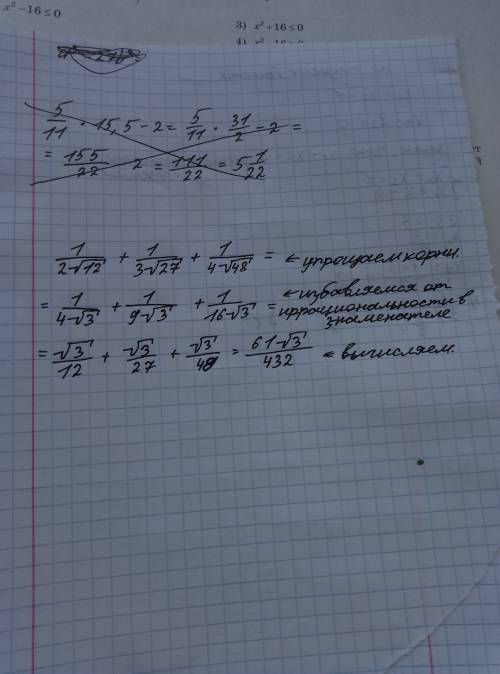 x² − 16 ≤ 0
3) x² + 16 ≤ 0
4) x² − 16 ≥ 0
5/11 · 15,5 − 2 = 5/11 · 31/2 − 2 =
= 155/22 − 2 = 111/22 = 5 1/22
1/(2√12) + 1/(3√27) + 1/(4√48) = ← упрощаем корни.
= 1/(4√3) + 1/(9√3) + 1/(16√3) = ← избавляемся от
иррациональности в
знаменателе
= √3/12 + √3/27 + √3/48 = 61√3/432 ← вычисляем.